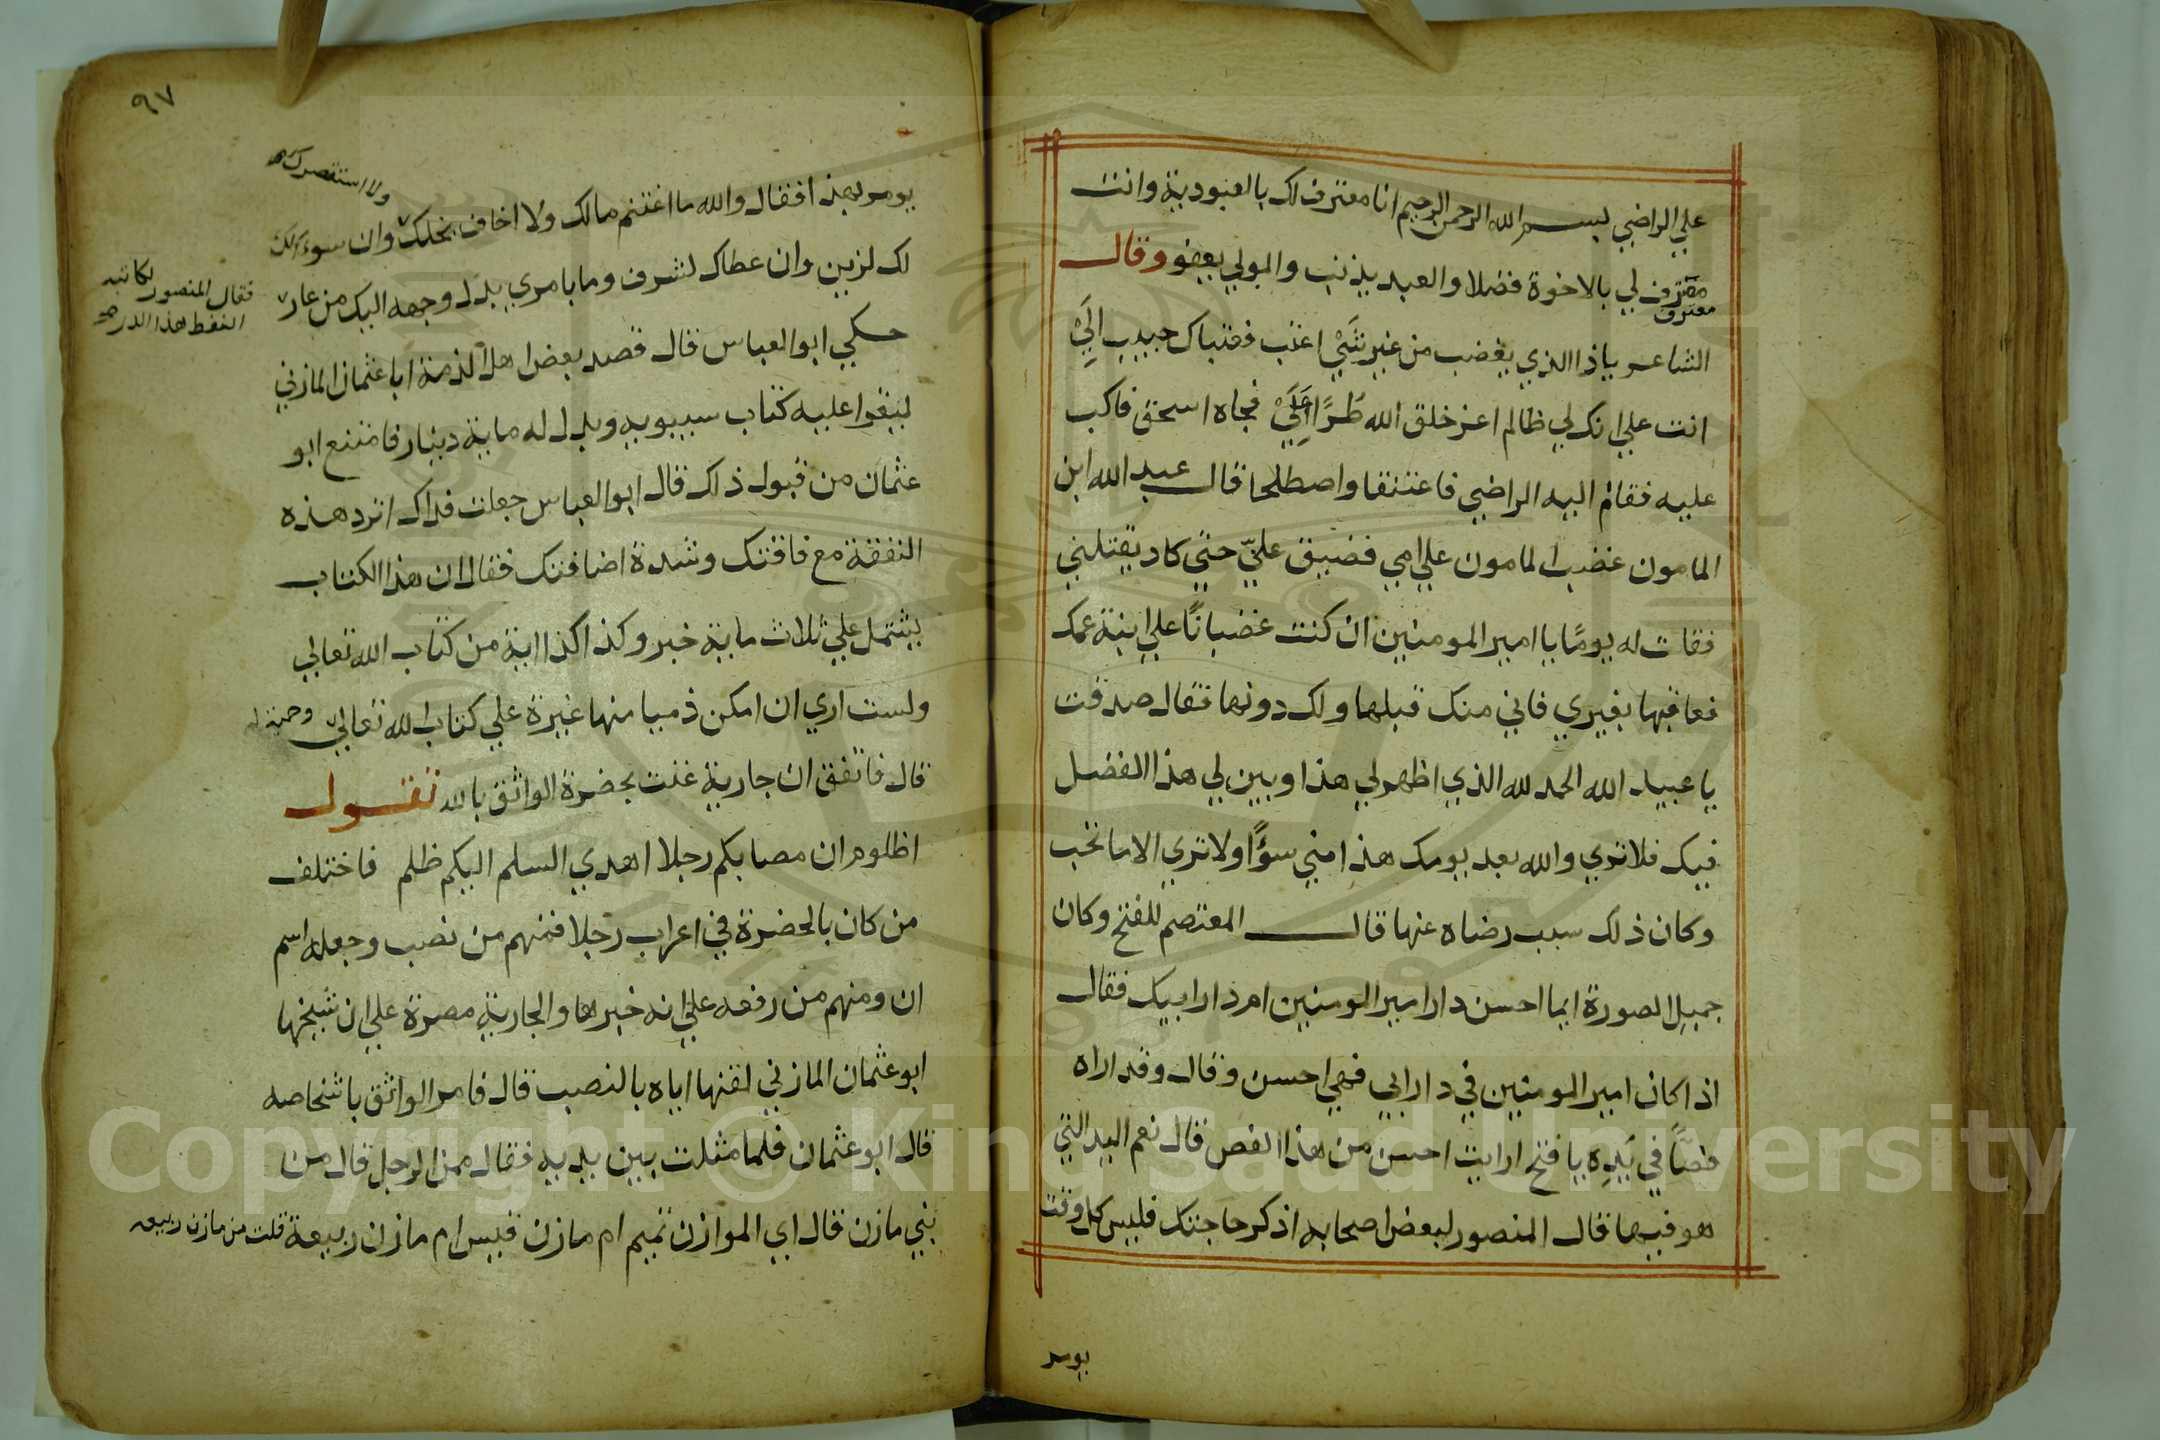 علي الراضي بسم الله الرحمن الرحيم انا معترف لك بالعبودية وانت
معترف لي بالاخوة فضلا والعبد يذنب والمولي يعفو وقال
معترف
الشاعر ياذا الذي يغضب من غير شَيْ اعتب فعتباك حبيب الَيْ
انت علي انك لي ظالم اعز خلق الله طُرًّا عَلَيْ فجاه اسحق فاكب
عليه فقام اليه الراضي فاعتنقا واصطلحا قال عبد الله ابن
المامون غضب المامون علي امي فضيق عليّ حتي كاد يقتلني
فقلت له يومًا يا امير المومنين ان كنت غضبانًا علي ابنة عمك
فعاقبها بغيري فاني منك قبلها ولك دونها فقال صدقت
يا عبيد الله الحمد لله الذي اظهر لي هذا وبين لي هذا الفضل
فيك فلا تري والله بعد يومك هذا مني سوًّا ولا تري الا ما تحب
وكان ذلك سبب رضاه عنها قال المعتصم للفتح وكان
جميل الصورة ايما احسن دار امير المومنين ام دار ابيك فقال
اذا كان امير المومنين في دار ابي فهي احسن وقال وقد اراه
فصًّا في يَدِه يا فتح ارايت احسن من هذا الفص قال نعم اليد التي
هو فيها قال المنصور لبعض اصحابه اذكر حاجتك فليس كل وقت
يومر
٩٧
ولا استقصر
يومر بهذا فقال والله ما اغتنم مالك ولا اخاف بخلك وان سوالك
لك لزين وان عطاك لشرف وما بامري بذل وجهه اليك من عار
فقال المنصور لكاتبه
القط هذا الدر
حكي ابو العباس قال قصد بعض اهل الذمة ابا عثمان المازني
ليقرا عليه كتاب سيبويه وبدل له ماية دينار فامتنع ابو
عثمان من قبول ذلك قال ابو العباس جعلت فداك اترد هذه
النفقة مع فاقتك وشدة اضافتك فقال ان هذا الكتاب
يشتمل علي ثلاث ماية خبر وكذا كذا اية من كتاب الله تعالي
ولست اري ان امكن ذميا منها غيرة علي كتاب الله تعالي وحمية له
قال فاتفق ان جارية غنت بحضرة الواثق بالله تقول
اظلوم ان مصابكم رجلا اهدي السلم اليكم ظلم فاختلف
من كان بالحضرة في اعراب رجلا فمنهم من نصب وجعله اسم
ان ومنهم من رفعه علي انه خبرها والجارية مصرة علي ان شيخها
ابو عثمان المازني لقنها اياه بالنصب قال فامر الواثق باشخاصه
قال ابو عثمان فلما مثلت بين يديه فقال ممن الرجل قال من
بني مازن قال اي الموازن تميم ام مازن قيس ام مازن ربيعة قلت من مازن ربيعه
Copyright © King Saud University